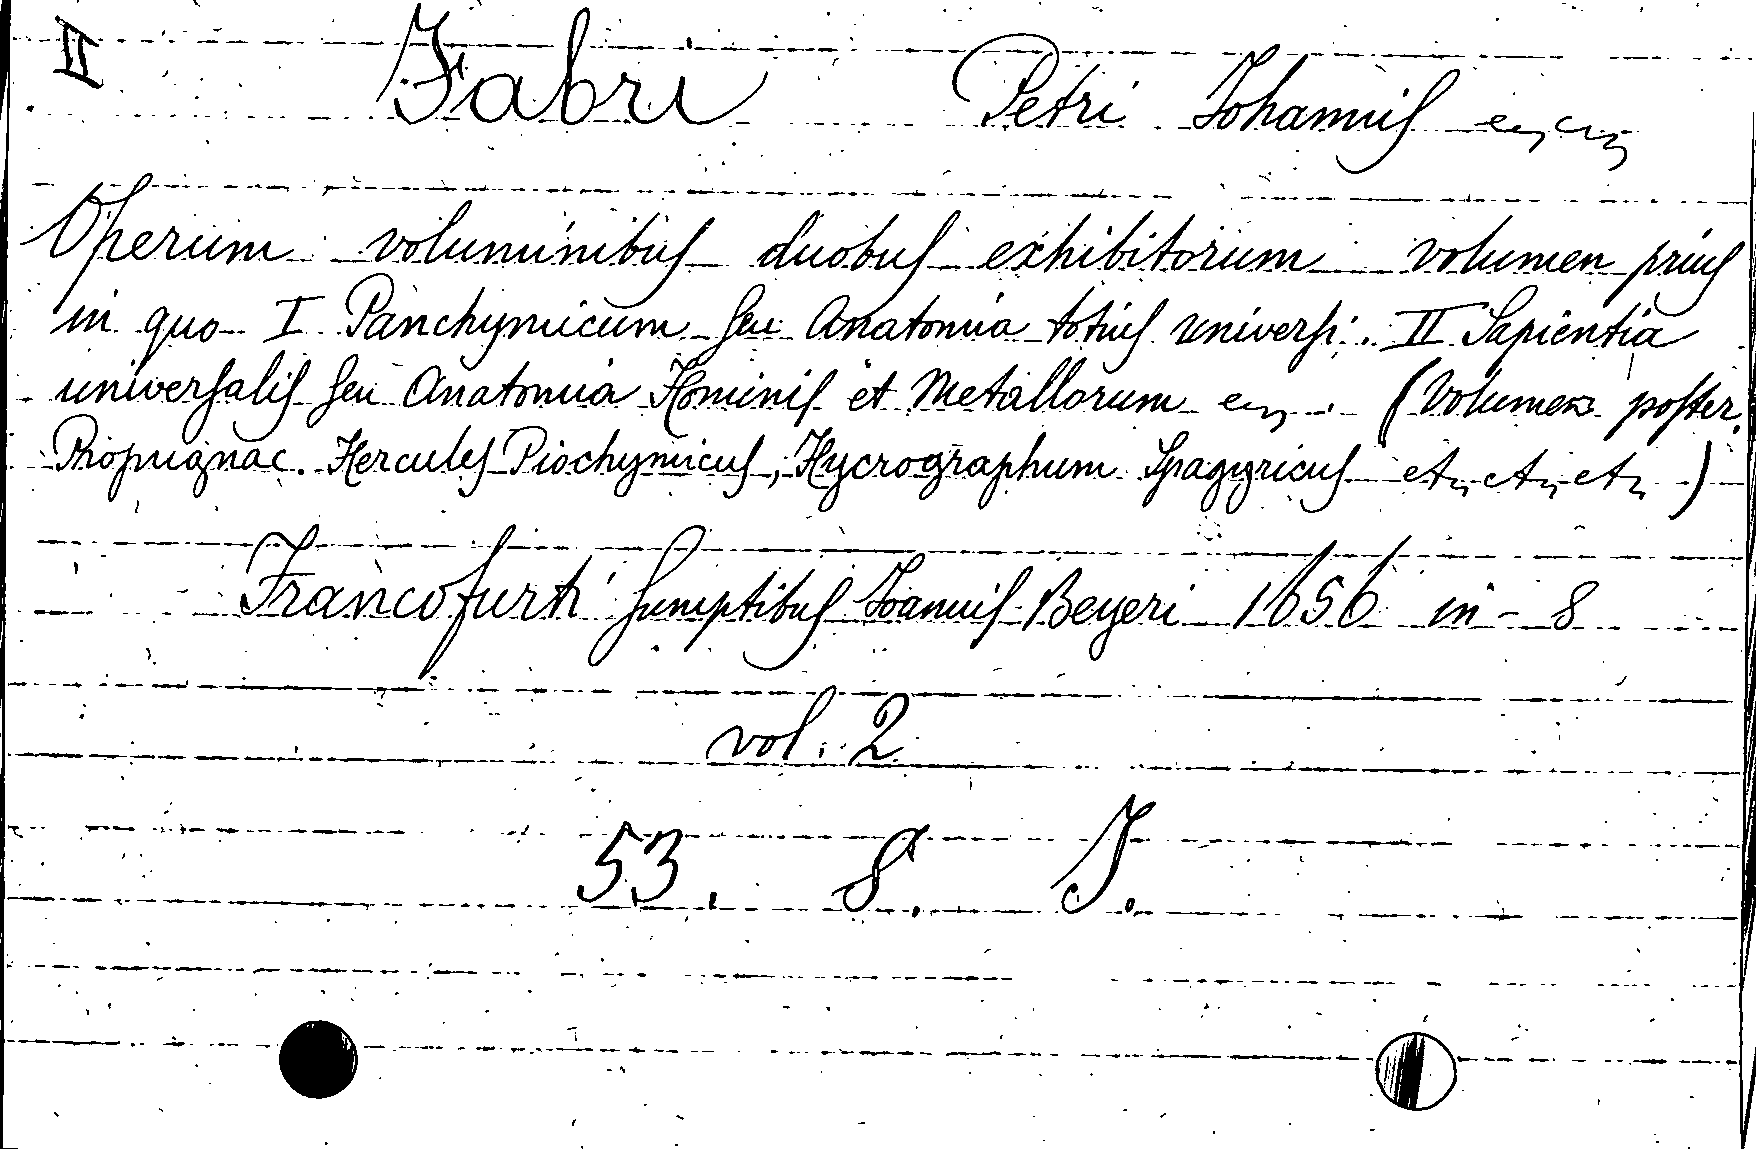 II Fabri Petri Johannis ecc, ecc,
Operum voluminibus duobus exhibitorum volumen prius
in quo I Panchymicum seu Anatomia totius universi. II Sapientia
universalis seu Anatomia Hominis et Metallorum ecc. (Volumen poster.
Propugnac. Hercules Piochymicus, Hycrographum Spagyricus etc, etc, etc)
Francofurti sumptibus Joannis Beyeri 1656 in-8
vol. 2
53. 8. J.